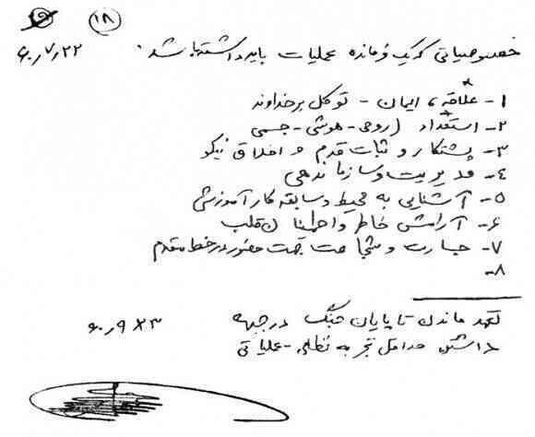 ۱۸
خصوصیاتی که یک فرمانده عملیات باید داشته باشد. ۶۰٫۷٫۲۲
۱- علاقه، ایمان - توکل بر خداوند
۲- استعداد (روحی - هوشی - جسمی
۳- پشتکار و ثبات قدم و اخلاق نیکو
۴- مدیریت و سازماندهی
۵- آشنایی به محیط و سابقه کار آموزشی
۶- آرامش خاطر و اطمینان قلب
۷- جسارت و شجاعت جهت حضور در خط مقدم
۸-
تعهد ماندن تا پایان جنگ در جبهه ۶۰٫۹٫۲۳
داشتن حداقل تجربه نظامی - عملیاتی